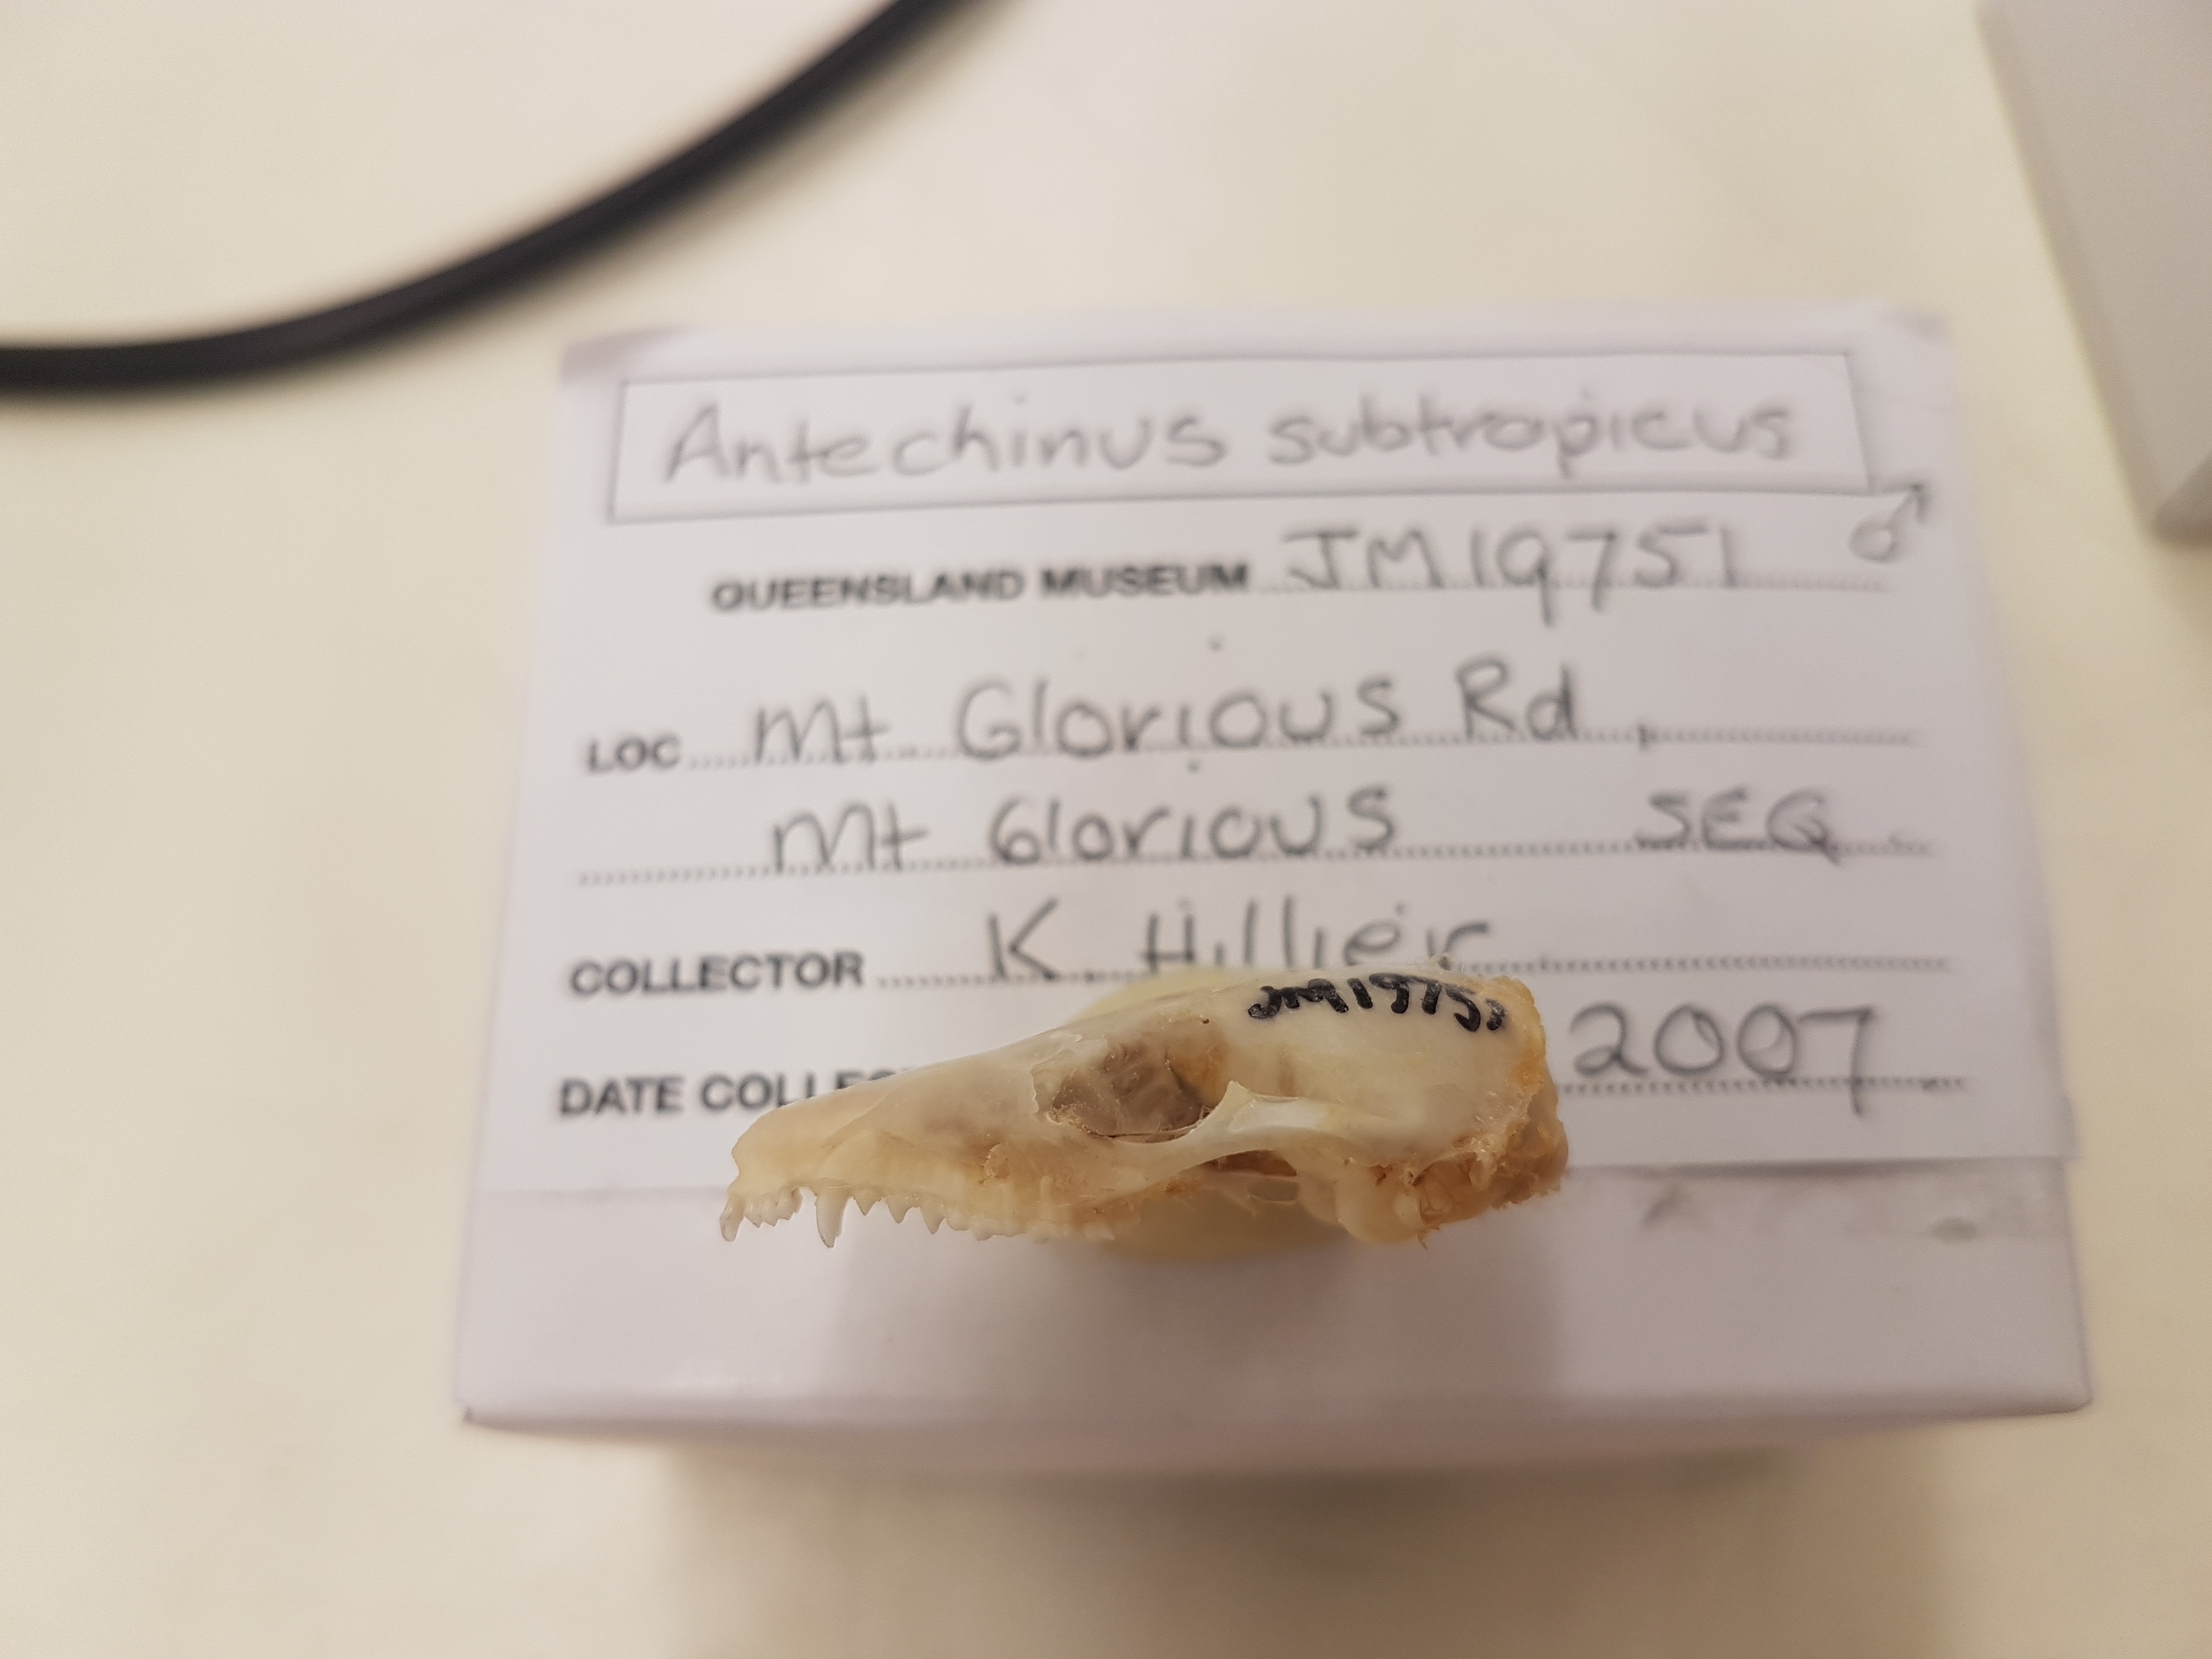 Antechinus subtropicus
♂
QUEENSLAND MUSEUM JM19751
LOC Mt Glorious Rd
Mt Glorious SEQ
COLLECTOR K Hillier
DATE 2007
JM19751